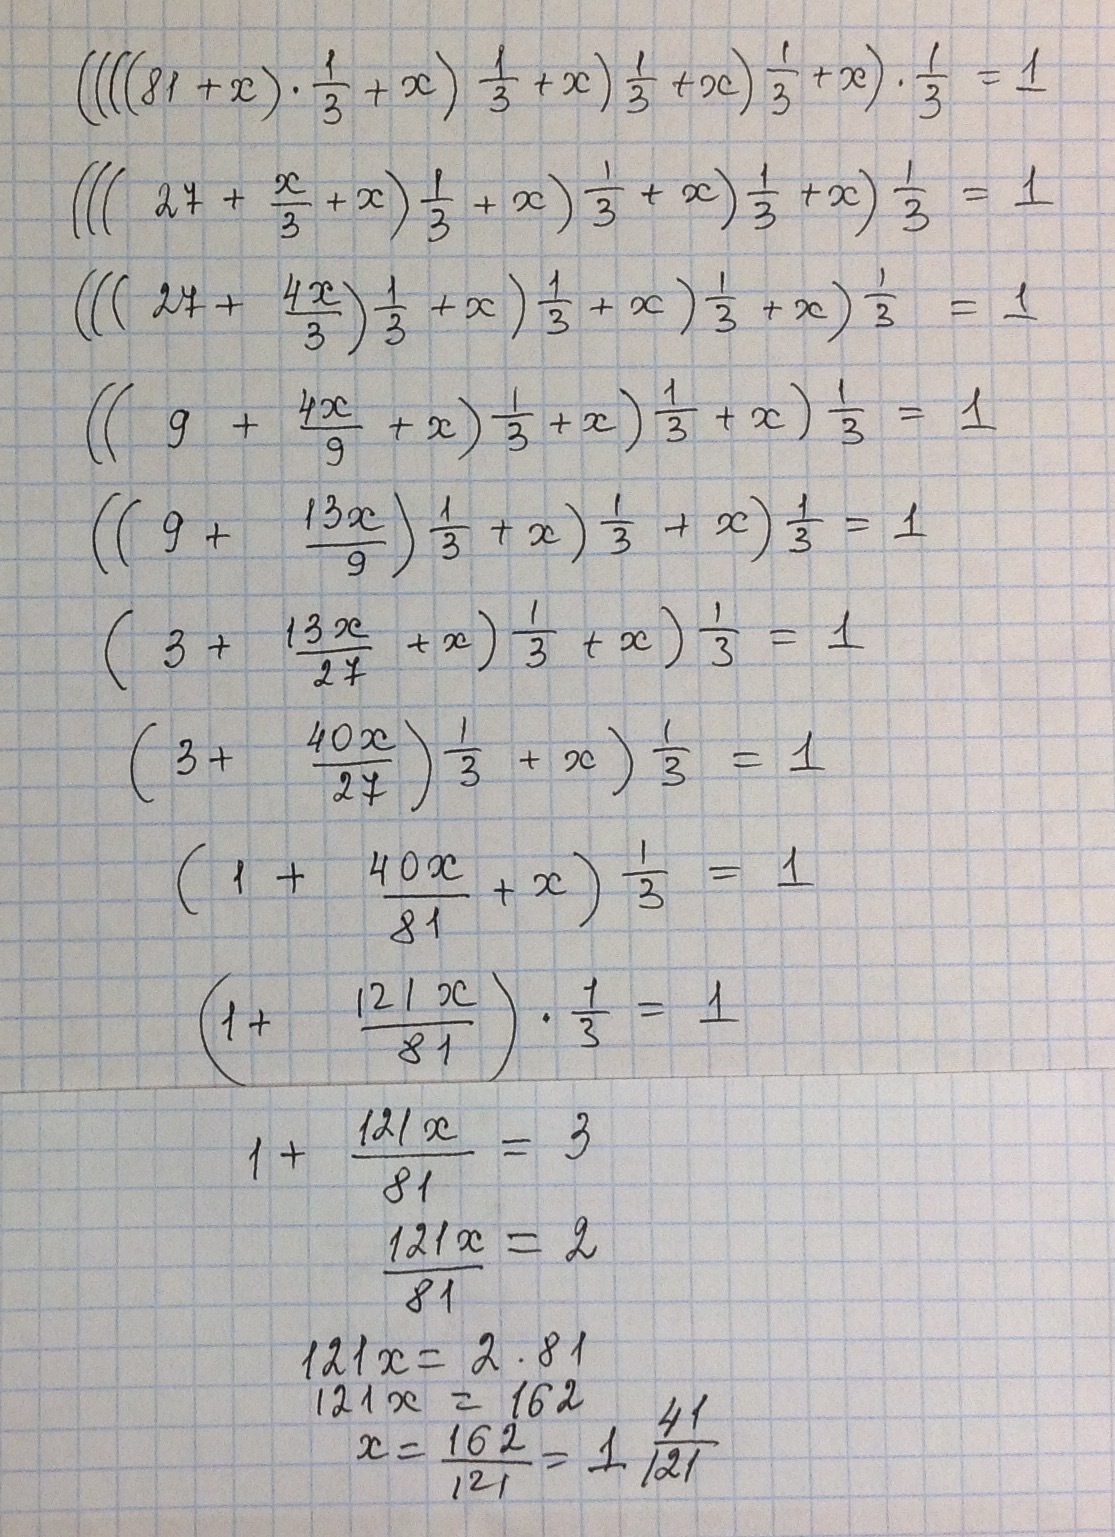 ((((81 + x) · 1/3 + x) 1/3 + x) 1/3 + x) 1/3 + x) · 1/3 = 1
((( 27 + x/3 + x) 1/3 + x) 1/3 + x) 1/3 + x) 1/3 = 1
((( 27 + 4x/3) 1/3 + x) 1/3 + x) 1/3 + x) 1/3 = 1
(( 9 + 4x/9 + x) 1/3 + x) 1/3 + x) 1/3 = 1
(( 9 + 13x/9) 1/3 + x) 1/3 + x) 1/3 = 1
( 3 + 13x/27 + x) 1/3 + x) 1/3 = 1
( 3 + 40x/27) 1/3 + x) 1/3 = 1
( 1 + 40x/81 + x) 1/3 = 1
(1 + 121x/81) · 1/3 = 1
1 + 121x/81 = 3
121x/81 = 2
121x = 2 · 81
121x = 162
x = 162/121 = 1 41/121